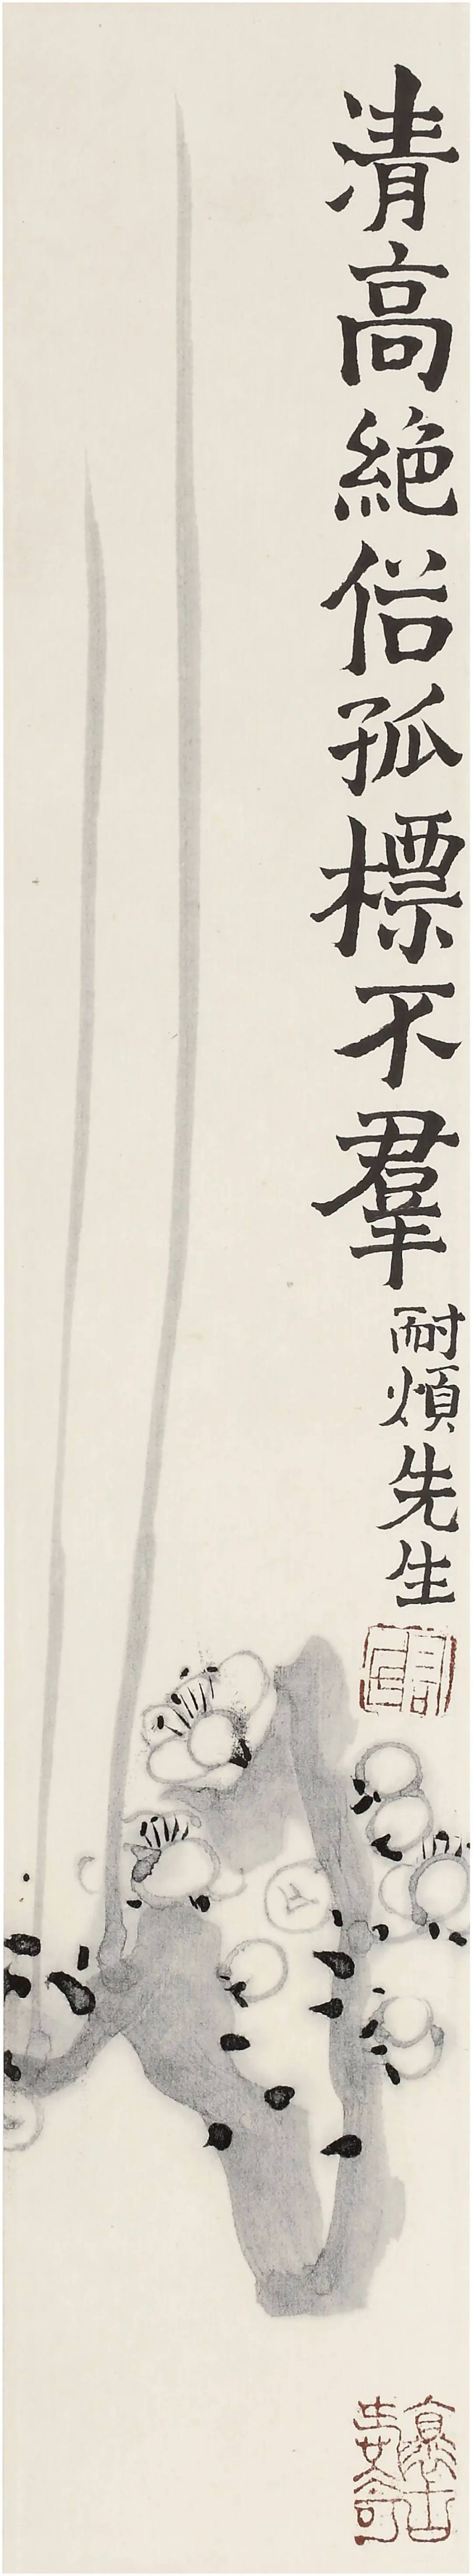 清高絕俗孤標不羣
耐煩先生